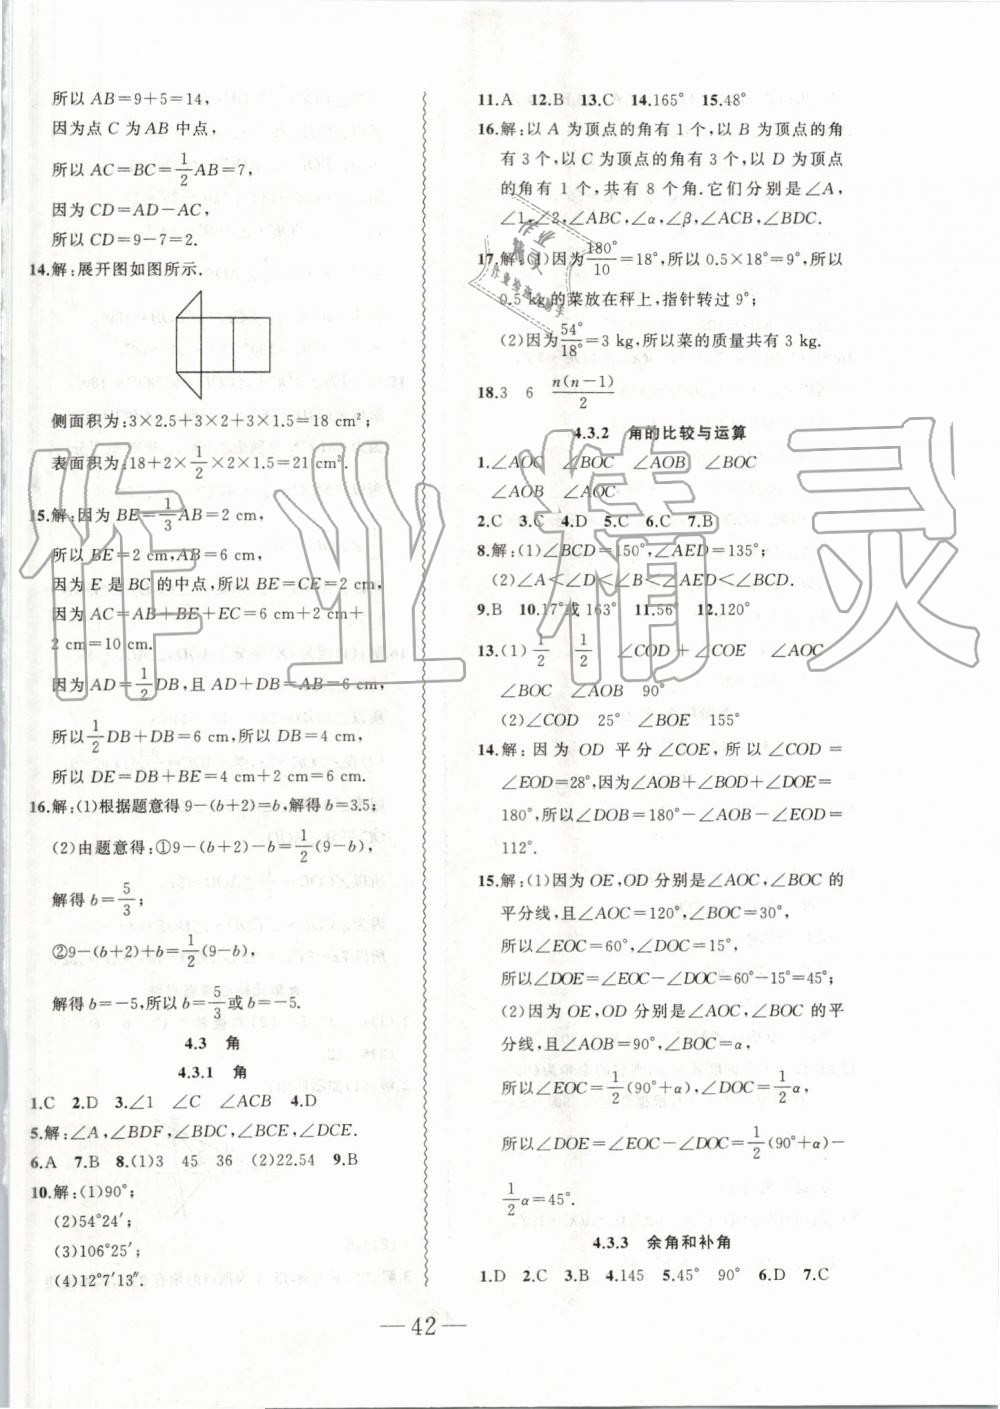 所以 AB=9+5=14,
因为点 C 为 AB 中点,
所以 AC=BC=1/2AB=7,
因为 CD=AD-AC,
所以 CD=9-7=2.
14.解:展开图如图所示.
侧面积为:3×2.5+3×2+3×1.5=18 cm²;
表面积为:18+2×1/2×2×1.5=21 cm².
15.解:因为 BE=1/3AB=2 cm,
所以 BE=2 cm,AB=6 cm,
因为 E 是 BC 的中点,所以 BE=CE=2 cm,
因为 AC=AB+BE+EC=6 cm+2 cm+
2 cm=10 cm.
因为 AD=1/2DB,且 AD+DB=AB=6 cm,
所以1/2DB+DB=6 cm,所以 DB=4 cm,
所以 DE=DB+BE=4 cm+2 cm=6 cm.
16.解:(1)根据题意得 9-(b+2)=b,解得 b=3.5;
(2)由题意得:①9-(b+2)-b=1/2(9-b),
解得 b=5/3;
②9-(b+2)+b=1/2(9-b),
解得 b=-5,所以 b=5/3或 b=-5.
4.3 角
4.3.1 角
1.C 2.D 3.∠1 ∠C ∠ACB 4.D
5.解:∠A,∠BDF,∠BDC,∠BCE,∠DCE.
6.A 7.B 8.(1)3 45 36 (2)22.54 9.B
10.解:(1)90°;
(2)54°24′;
(3)106°25′;
(4)12°7′13″.
11.A 12.B 13.C 14.165° 15.48°
16.解:以 A 为顶点的角有 1 个,以 B 为顶点的角
有 3 个,以 C 为顶点的角有 3 个,以 D 为顶点
的角有 1 个,共有 8 个角.它们分别是∠A,
∠1,∠2,∠ABC,∠α,∠β,∠ACB,∠BDC.
17.解:(1)因为180°/10=18°,所以 0.5×18=9°,所以
0.5 kg的菜放在秤上,指针转过 9°;
(2)因为54°/18°=3 kg,所以菜的质量共有 3 kg.
18.3 6 n(n-1)/2
4.3.2 角的比较与运算
1.∠AOC ∠BOC ∠AOB ∠BOC
∠AOB ∠AOC
2.C 3.C 4.D 5.C 6.C 7.B
8.解:(1)∠BCD=150°,∠AED=135°;
(2)∠A<∠D<∠B<∠AED<∠BCD.
9.B 10.17°或 163° 11.56° 12.120°
13.(1)1/2 1/2 ∠COD+∠COE ∠AOC
∠BOC ∠AOB 90°
(2)∠COD 25° ∠BOE 155°
14.解:因为 OD 平分∠COE,所以∠COD=
∠EOD=28°,因为∠AOB+∠BOD+∠DOE=
180°,所以∠DOB=180°-∠AOB-∠EOD=
112°.
15.解:(1)因为 OE,OD 分别是∠AOC,∠BOC 的
平分线,且∠AOC=120°,∠BOC=30°,
所以∠EOC=60°,∠DOC=15°,
所以∠DOE=∠EOC-∠DOC=60°-15°=45°;
(2)因为 OE,OD 分别是∠AOC,∠BOC 的平
分线,且∠AOB=90°,∠BOC=α,
所以∠EOC=1/2(90°+α),∠DOC=1/2α,
所以∠DOE=∠EOC-∠DOC=1/2(90°+α)-
1/2α=45°.
4.3.3 余角和补角
1.D 2.C 3.B 4.145 5.45° 90° 6.D 7.C
—42—
作业精灵